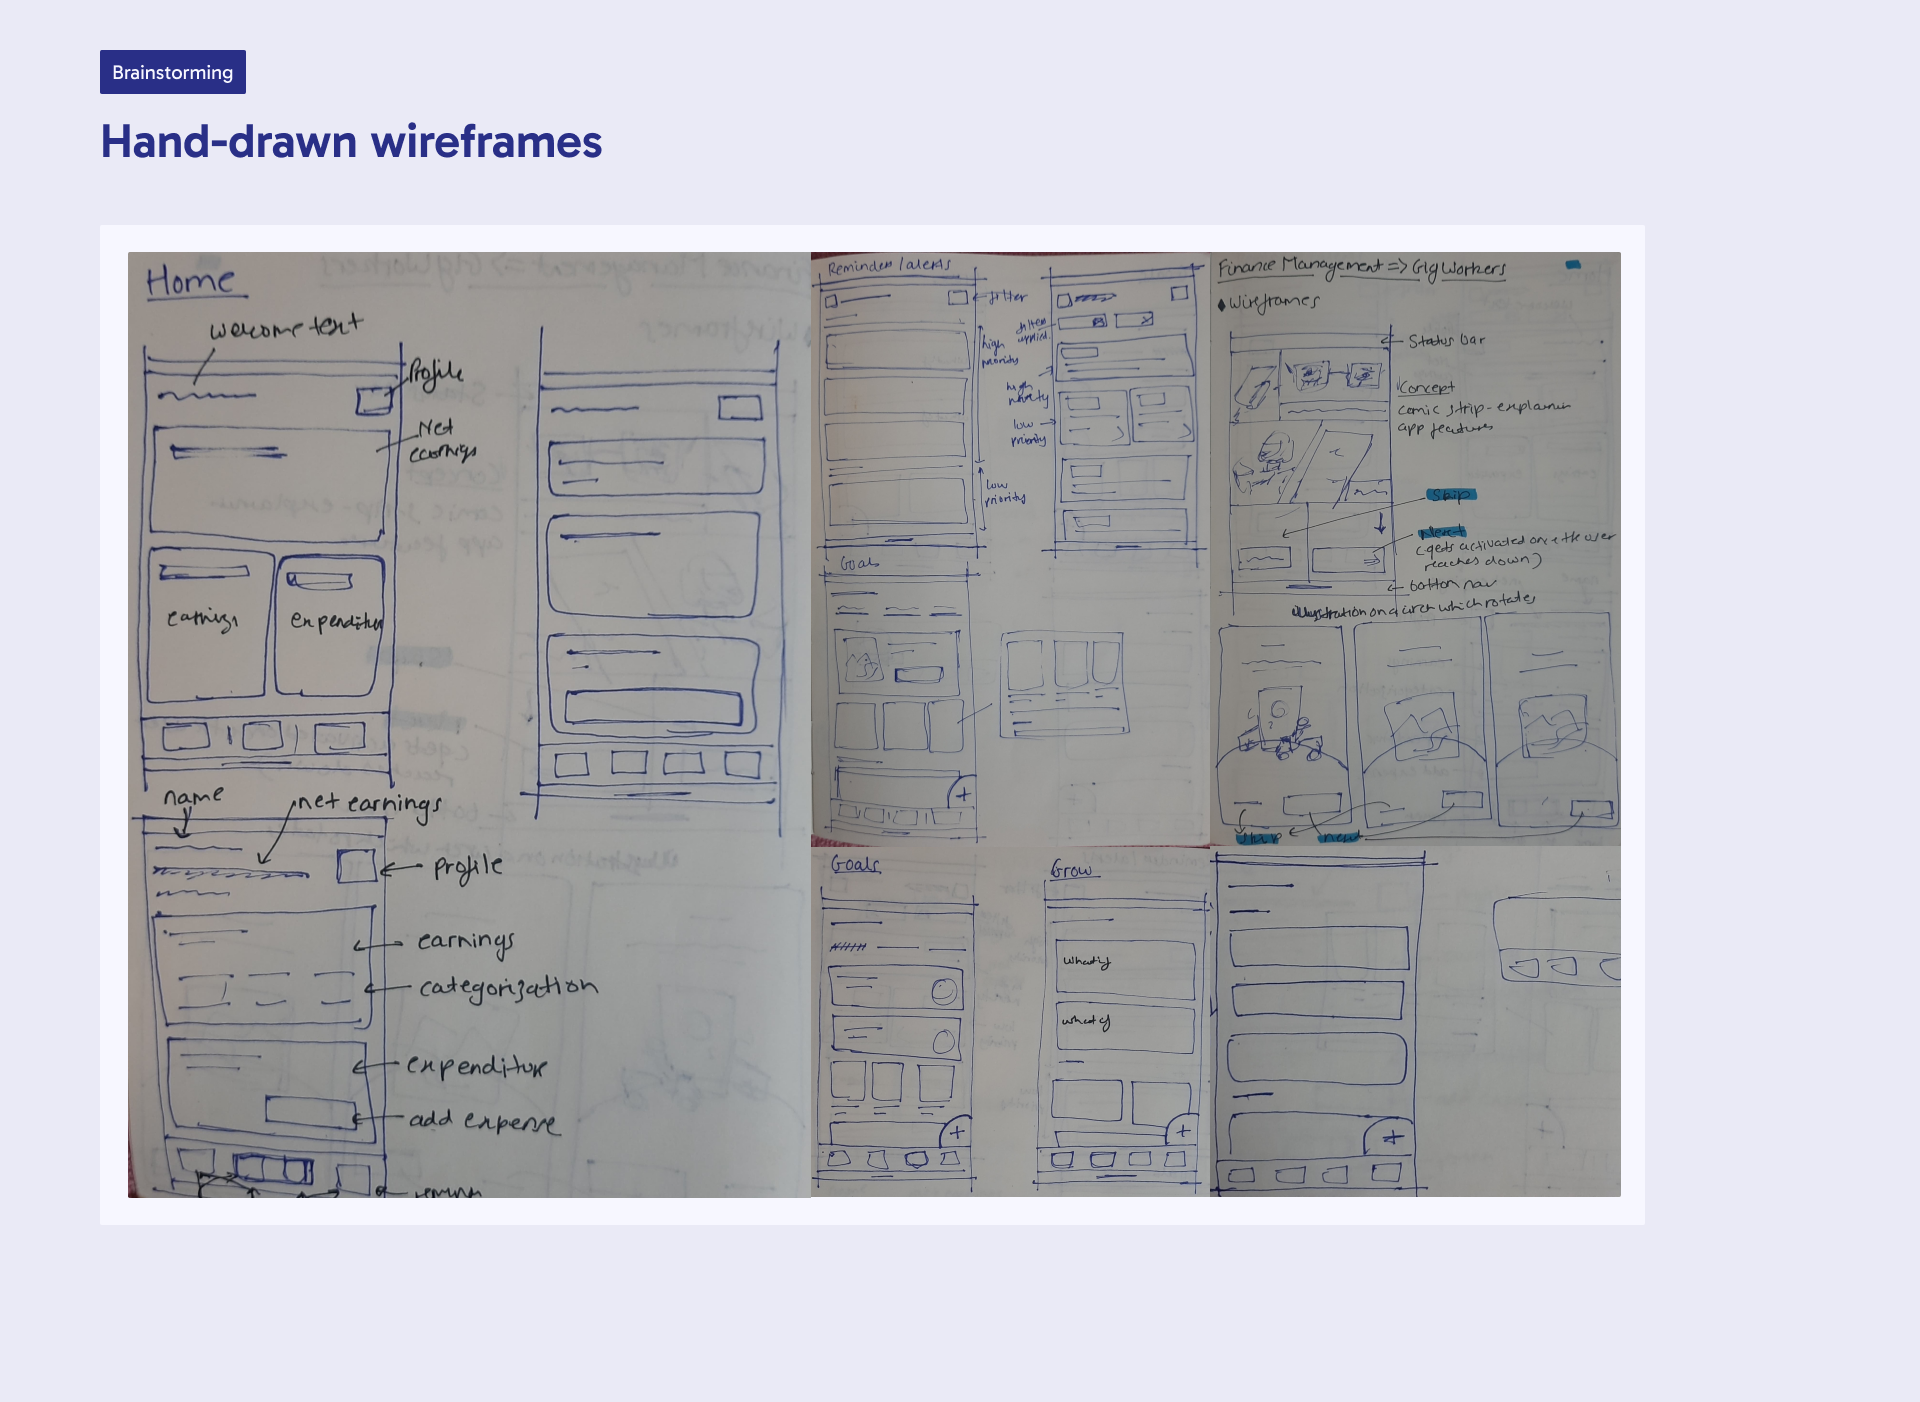 Brainstorming
Hand-drawn wireframes
Home
welcome text
Profile
Net
earnings
earnings
expenditur
name
net earnings
profile
earnings
categorization
expenditur
add expense
Reminders/alerts
filter
high
priority
low
priority
filter
applied
high
low
priority
Goals
Finance Management => Gig Workers
Wireframes
Status bar
Concept
comic strip - explainin
app features
Skip
Next
(gets activated once the user
reaches down)
bottom nav
illustration on a arch which rotates
skip
next
Goals
Grow
what if
what if